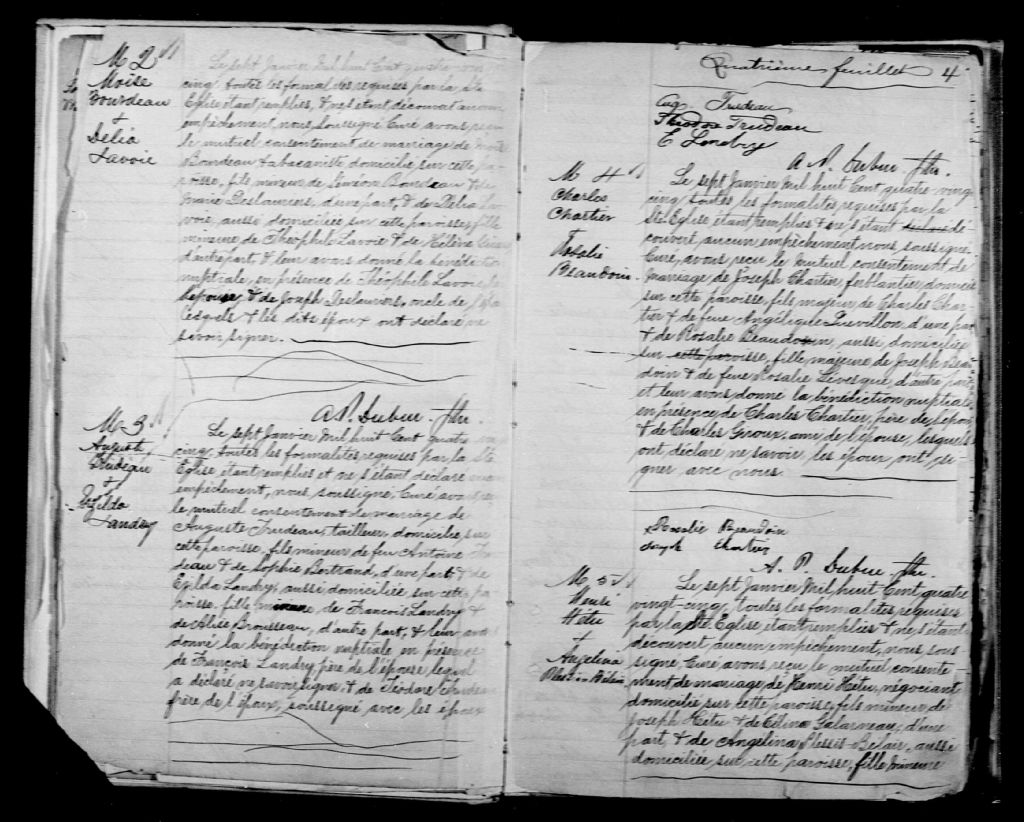 M 2
Moïse
Bourdeau
+
Délia
Lavoie
Le sept Janvier Mil huit Cent quatre-ving
cinq toutes les formalités requises par la Ste
Eglise étant remplies, & ne s'étant découvert aucun
empêchement, nous, soussigné Curé avons reçu
le mutuel consentement de mariage de Moïse
Bourdeau tabaconiste domicilié sur cette pa-
roisse, fils mineur de Siméon Bourdeau & de
Marie Deslauriers, d'une part, & de Délia La-
voie, aussi domiciliée sur cette paroisse, fille
mineure de Théophile Lavoie & de Hélène
d'autre part, & leur avons donné la bénédiction
nuptiale, en présence de Théophile Lavoie,
l'épouse, & de Joseph Deslauriers, oncle de
lesquels & les dits époux ont déclaré ne
savoir signer.
A P. Dubuc - Ptre.
M 3
Auguste
Trudeau
+
Exilda
Landry
Le sept Janvier Mil huit Cent quatre ving
cinq, toutes les formalités requises par la Ste
Eglise étant remplies et ne s'étant déclaré aucun
empêchement, nous, soussigné, Curé avons reçu
le mutuel consentement de mariage de
Auguste Trudeau, tailleur, domicilié sur
cette paroisse, fils mineur de feu Antoine Tru
deau & de Sophie Bertrand, d'une part, & de
Exilda Landry, aussi domiciliée sur cette pa
roisse, fille mineure, de François Landry &
de Elise Brousseau, d'autre part, & leur avons
donné la bénédiction nuptiale en présence
de François Landry, père de l'épouse, lequel
a déclaré ne savoir signer, & de Théodore Trudeau
frère de l'époux, soussigné avec les époux
Quatrième feuillet 4
Aug. Trudeau
Théodore Trudeau
E Landry
A P. Dubuc - Ptre.
M 4
Charles
Chartier
+
Rosalie
Beaudoin
Le sept Janvier Mil huit Cent quatre ving
cinq toutes les formalités requises par la
Ste Eglise étant remplies & ne s'étant dé-
couvert, aucun empêchement, nous soussigné
Curé, avons reçu le Mutuel consentement de
mariage de Joseph Chartier, ferblantier, domicilié
sur cette paroisse, fils majeur de Charles Char-
tier & de feue Angélique Truvillon, d'une part
& de Rosalie Beaudoin, aussi domiciliée
sur cette paroisse, fille majeure de Joseph Beau
doin & de feue Rosalie Lévesque, d'autre part,
et leur avons donné la bénédiction nuptiale
en présence de Charles Chartier, père de l'époux
& de Charles Giroux, ami de l'épouse, lesquels
ont déclaré ne savoir, les époux ont si-
gner avec nous.
Rosalie Beaudoin
Joseph Chartier
A. P. Dubuc - Ptre.
M 5
Henri
Hétu
+
Angelina
Plessis Bélair
Le sept Janvier Mil huit Cent quatre
vingt-cinq, toutes les formalités requises
par la Ste Eglise étant remplies & ne s'étant
découvert aucun empêchement, nous sous
signé, Curé avons reçu le mutuel consente-
ment de mariage de Henri Hétu, négociant
domicilié sur cette paroisse, fils mineur de
Joseph Hétu & de Célina Galarneau, d'une
part, & de Angélina Plessis-Bélair, aussi
domiciliée sur cette paroisse, fille mineure